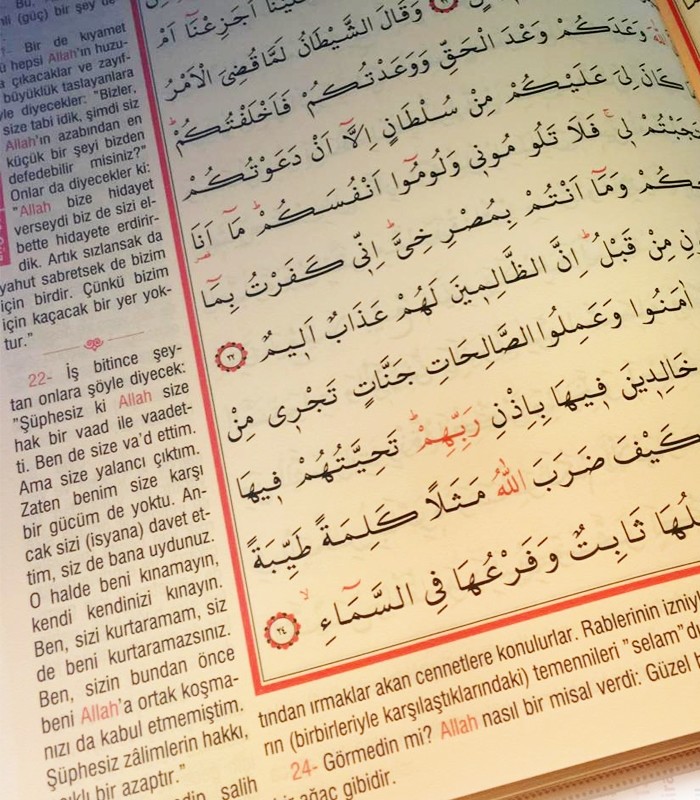 Bu,
(güç) bir şey de
Bir de kıyamet
hepsi Allah'ın huzu-
çıkacaklar ve zayıf-
büyüklük taslayanlara
diyecekler: "Bizler,
size tabi idik, şimdi siz
Allah'ın azabından en
küçük bir şeyi bizden
defedebilir misiniz?"
Onlar da diyecekler ki:
"Allah bize hidayet
verseydi biz de sizi el-
bette hidayete erdirir-
dik. Artık sızlansak da
yahut sabretsek de bizim
için birdir. Çünkü bizim
için kaçacak bir yer yok-
tur."
22- İş bitince şey-
tan onlara şöyle diyecek:
"Şüphesiz ki Allah size
hak bir vaad ile vaadet-
ti. Ben de size va'd ettim.
Ama size yalancı çıktım.
Zaten benim size karşı
bir gücüm de yoktu. An-
cak sizi (isyana) davet et-
tim, siz de bana uydunuz.
O halde beni kınamayın,
kendi kendinizi kınayın.
Ben, sizi kurtaramam, siz
de beni kurtaramazsınız.
Ben, sizin bundan önce
beni Allah'a ortak koşma-
nızı da kabul etmemiştim.
Şüphesiz zâlimlerin hakkı,
bir azaptır."
salih
اَجَزِعْنَٓا اَمْ
وَقَالَ الشَّيْطَانُ لَمَّا قُضِيَ الْاَمْرُ
وَعَدَكُمْ وَعْدَ الْحَقِّ وَوَعَدْتُكُمْ فَاَخْلَفْتُكُمْ
كَانَ لِيَ عَلَيْكُمْ مِنْ سُلْطَانٍ اِلَّٓا اَنْ دَعَوْتُكُمْ
لِي فَلَا تَلُومُونِي وَلُومُٓوا اَنْفُسَكُمْ مَٓا اَنَا
وَمَٓا اَنْتُمْ بِمُصْرِخِيَّ اِنِّي كَفَرْتُ بِمَٓا
مِنْ قَبْلُ اِنَّ الظَّالِمِينَ لَهُمْ عَذَابٌ اَلِيمٌ ٢٢
اٰمَنُوا وَعَمِلُوا الصَّالِحَاتِ جَنَّاتٍ تَجْرِي مِنْ
خَالِدِينَ فِيهَا بِاِذْنِ رَبِّهِمْ تَحِيَّتُهُمْ فِيهَا
كَيْفَ ضَرَبَ اللّٰهُ مَثَلًا كَلِمَةً طَيِّبَةً
ثَابِتٌ وَفَرْعُهَا فِي السَّمَٓاءِ ٢٤
tından ırmaklar akan cennetlere konulurlar. Rablerinin izniyl
rın (birbirleriyle karşılaştıklarındaki) temennileri "selam"
24- Görmedin mi? Allah nasıl bir misal verdi: Güzel
ağaç gibidir.